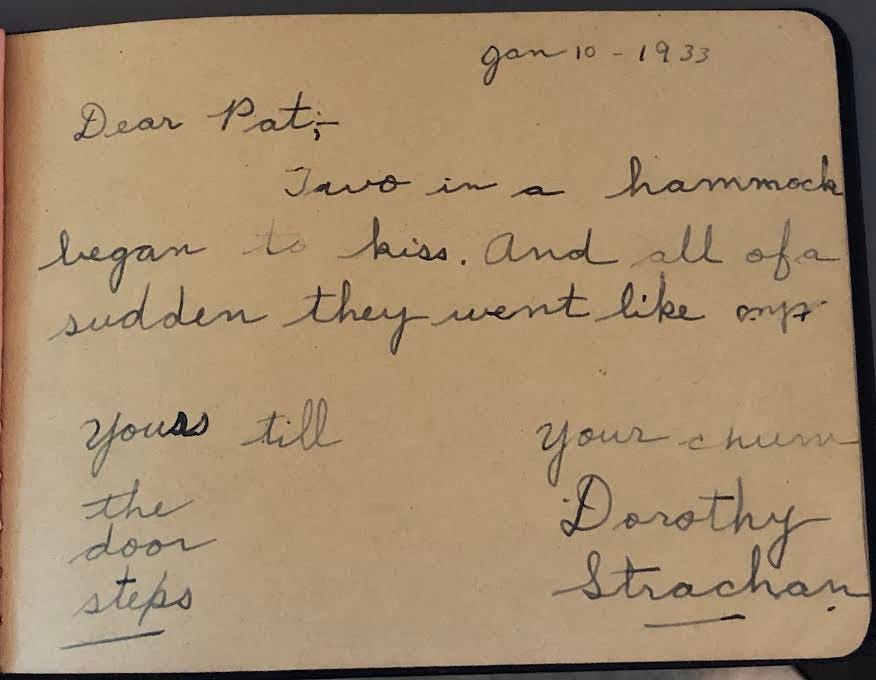 Jan 10 - 1933
Dear Pat;-
Two in a hammock
began to kiss. And all of a
sudden they went like
Yours till
the
door
steps
Your chum
Dorothy
Strachan.